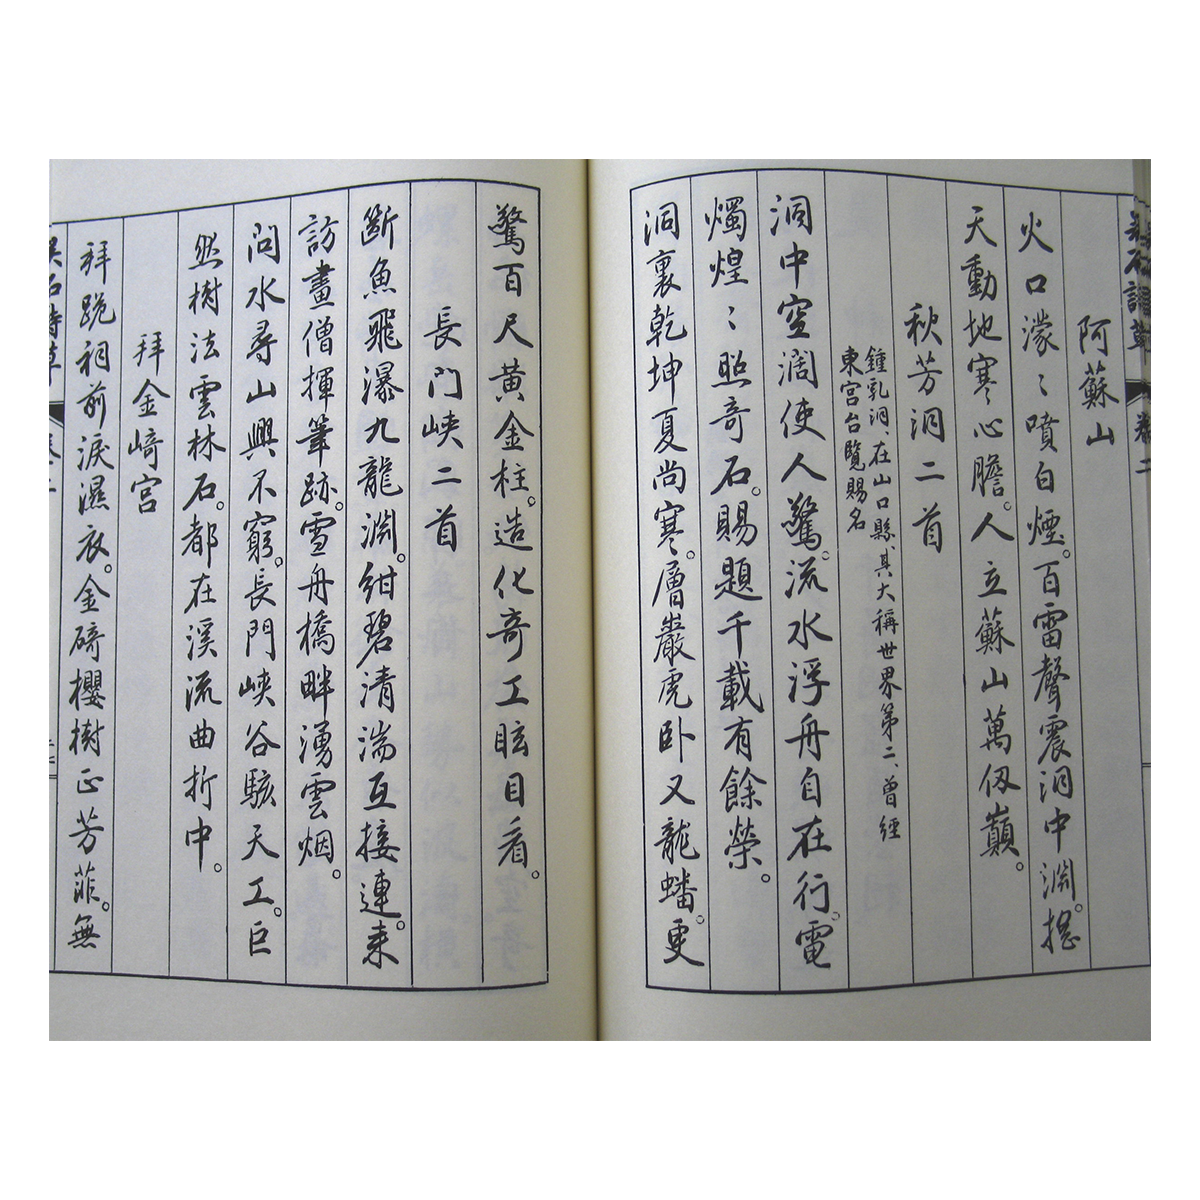 阿蘇山
火口濛〻噴白煙。百雷聲震洞中淵。搖
天動地寒心膽。人立蘇山萬仞巔。
秋芳洞二首
鍾乳洞、在山口縣、其大稱世界第二、曾經
東宮台覽賜名
洞中空濶使人驚。流水浮舟自在行。電
燭煌〻照奇石。賜題千載有餘榮。
洞裏乾坤夏尚寒。層巖虎卧又龍蟠。更
驚百尺黄金柱。造化奇工眩目看。
長門峡二首
斷魚飛瀑九龍淵。紺碧清湍互接連。来
訪畫僧揮筆跡。雪舟橋畔湧雲烟。
问水尋山興不窮。長門峡谷駭天工。巨
然樹法雲林石。都在溪流曲折中。
拜金﨑宮
拜跪祠前淚濕衣。金﨑櫻樹正芳菲。無